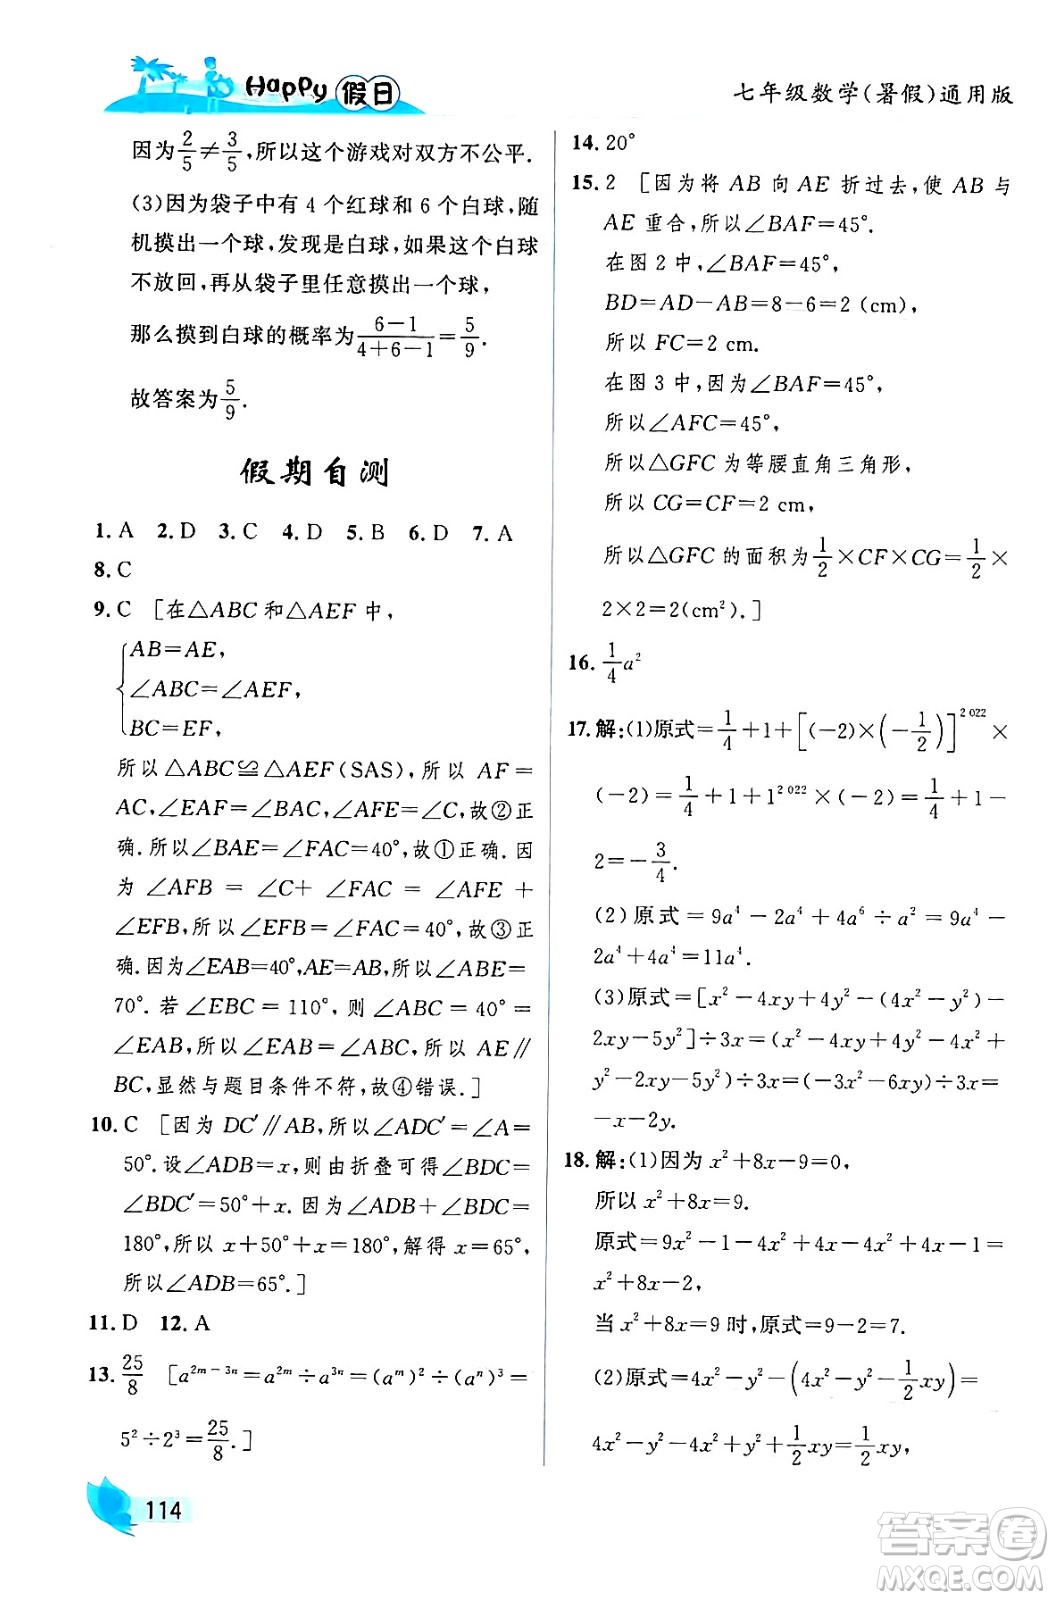 Happy 假日
七年级数学(暑假)通用版
因为2/5≠3/5,所以这个游戏对双方不公平.
(3)因为袋子中有 4 个红球和 6 个白球,随
机摸出一个球,发现是白球,如果这个白球
不放回,再从袋子里任意摸出一个球,
那么摸到白球的概率为(6-1)/(4+6-1)=5/9.
故答案为5/9.
假期自测
1. A 2. D 3. C 4. D 5. B 6. D 7. A
8. C
9. C [在△ABC 和△AEF 中,
{AB=AE,
∠ABC=∠AEF,
BC=EF,
所以△ABC≌△AEF(SAS),所以 AF=
AC,∠EAF=∠BAC,∠AFE=∠C,故②正
确.所以∠BAE=∠FAC=40°,故①正确.因
为∠AFB=∠C+∠FAC=∠AFE+
∠EFB,所以∠EFB=∠FAC=40°,故③正
确.因为∠EAB=40°,AE=AB,所以∠ABE=
70°.若∠EBC=110°,则∠ABC=40°=
∠EAB,所以∠EAB=∠ABC,所以 AE∥
BC,显然与题目条件不符,故④错误.]
10. C [因为 DC′∥AB,所以∠ADC′=∠A=
50°.设∠ADB=x,则由折叠可得∠BDC=
∠BDC′=50°+x.因为∠ADB+∠BDC=
180°,所以 x+50°+x=180°,解得 x=65°,
所以∠ADB=65°.]
11. D 12. A
13. 25/8 [a^(2m-3n)=a^(2m)÷a^(3n)=(a^m)²÷(a^n)³=
5²÷2³=25/8.]
114
14. 20°
15. 2 [因为将 AB 向 AE 折过去,使 AB 与
AE 重合,所以∠BAF=45°.
在图 2 中,∠BAF=45°,
BD=AD-AB=8-6=2 (cm),
所以 FC=2 cm.
在图 3 中,因为∠BAF=45°,
所以∠AFC=45°,
所以△GFC 为等腰直角三角形,
所以 CG=CF=2 cm,
所以△GFC 的面积为1/2×CF×CG=1/2×
2×2=2(cm²).]
16. 1/4a²
17. 解:(1)原式=1/4+1+[(-2)×(-1/2)]^2 022×
(-2)=1/4+1+1^2 022×(-2)=1/4+1-
2=-3/4.
(2)原式=9a⁴-2a⁴+4a⁶÷a²=9a⁴-
2a⁴+4a⁴=11a⁴.
(3)原式=[x²-4xy+4y²-(4x²-y²)-
2xy-5y²]÷3x=(x²-4xy+4y²-4x²+
y²-2xy-5y²)÷3x=(-3x²-6xy)÷3x=
-x-2y.
18. 解:(1)因为 x²+8x-9=0,
所以 x²+8x=9.
原式=9x²-1-4x²+4x-4x²+4x-1=
x²+8x-2,
当 x²+8x=9 时,原式=9-2=7.
(2)原式=4x²-y²-(4x²-y²-1/2xy)=
4x²-y²-4x²+y²+1/2xy=1/2xy,
答案卷